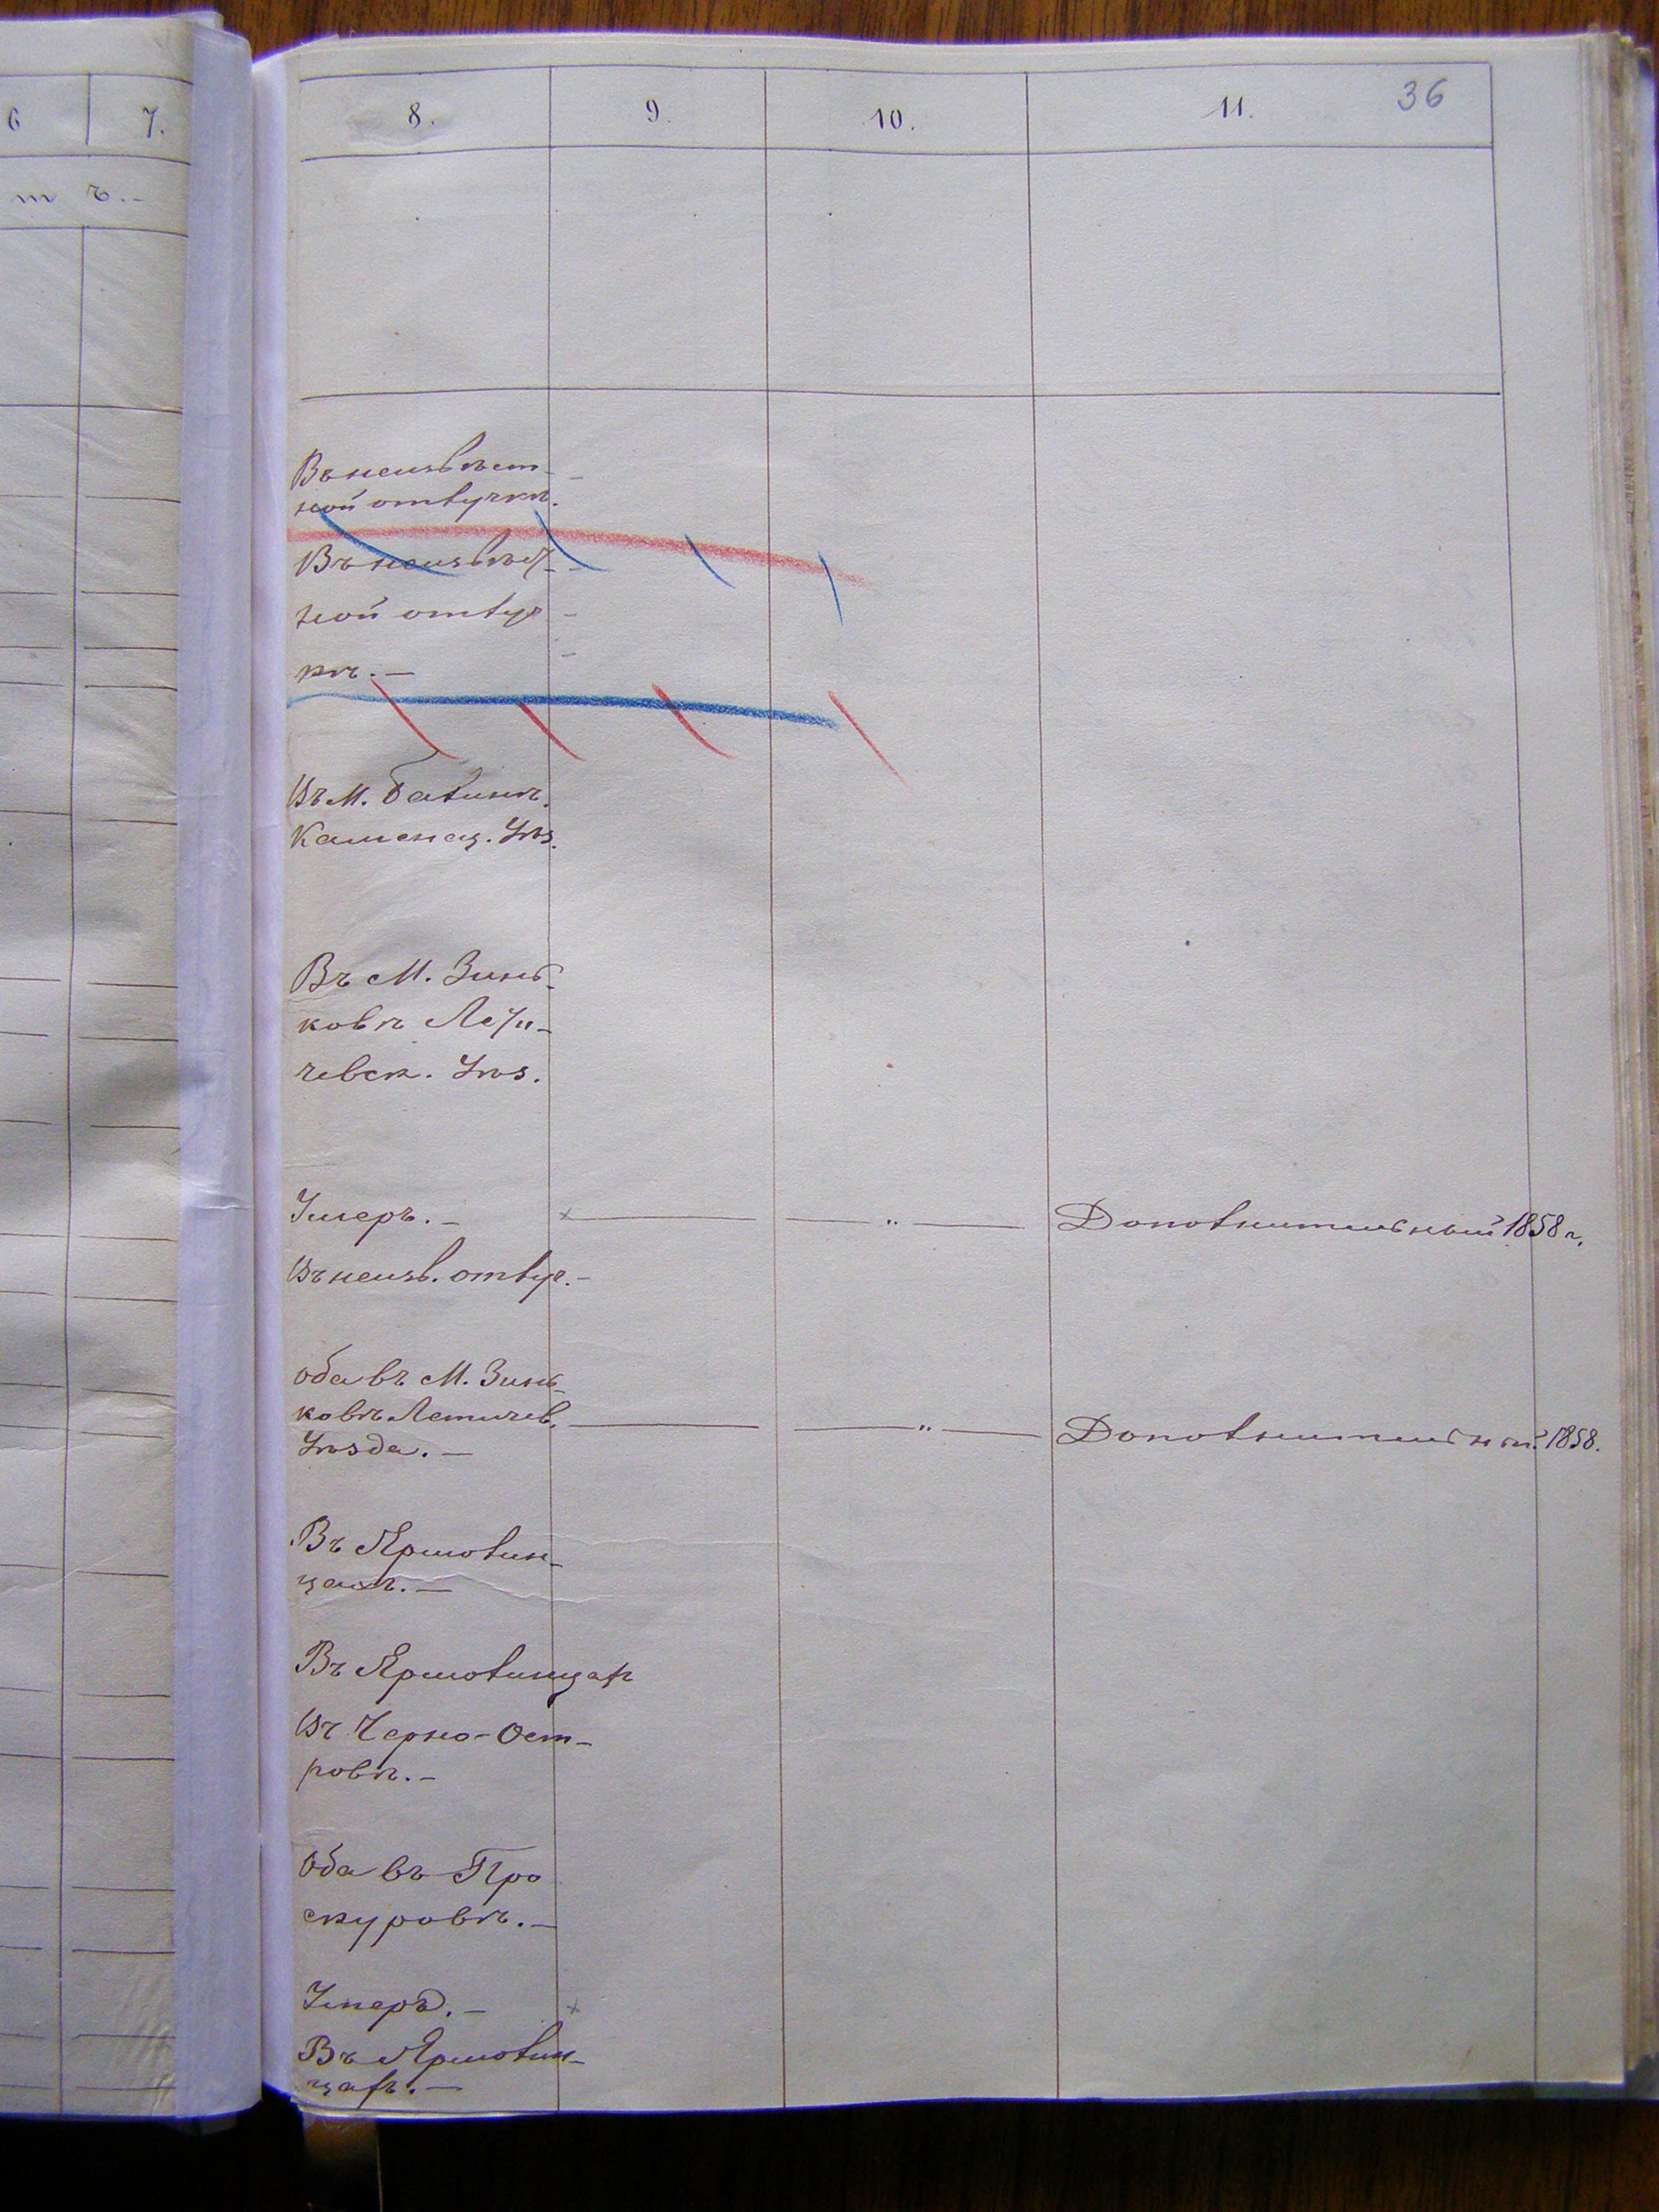 6 7.
8. 9. 10. 11. 36
т ъ.-
Въ неизвѣст-
ной отлучкѣ.
Въ неизвѣст-
ной отлуч
кѣ. —
Въ М.
Каменец. Уѣз.
Въ М. Зинь-
ковѣ Лети-
чевск. Уѣз.
Умеръ. —
Дополнительный 1858 г.
Въ неизв. отлуч. -
Оба въ М. Зинь-
ковѣ Летичев.
Дополнительный 1858.
Уѣзда. —
Въ Ярмолин-
цахъ. —
Въ Ярмолинцах
Въ Черно-Ост-
ровѣ. -
Оба въ Про
скуровѣ. —
Умеръ. —
Въ Ярмолин-
цахъ. —